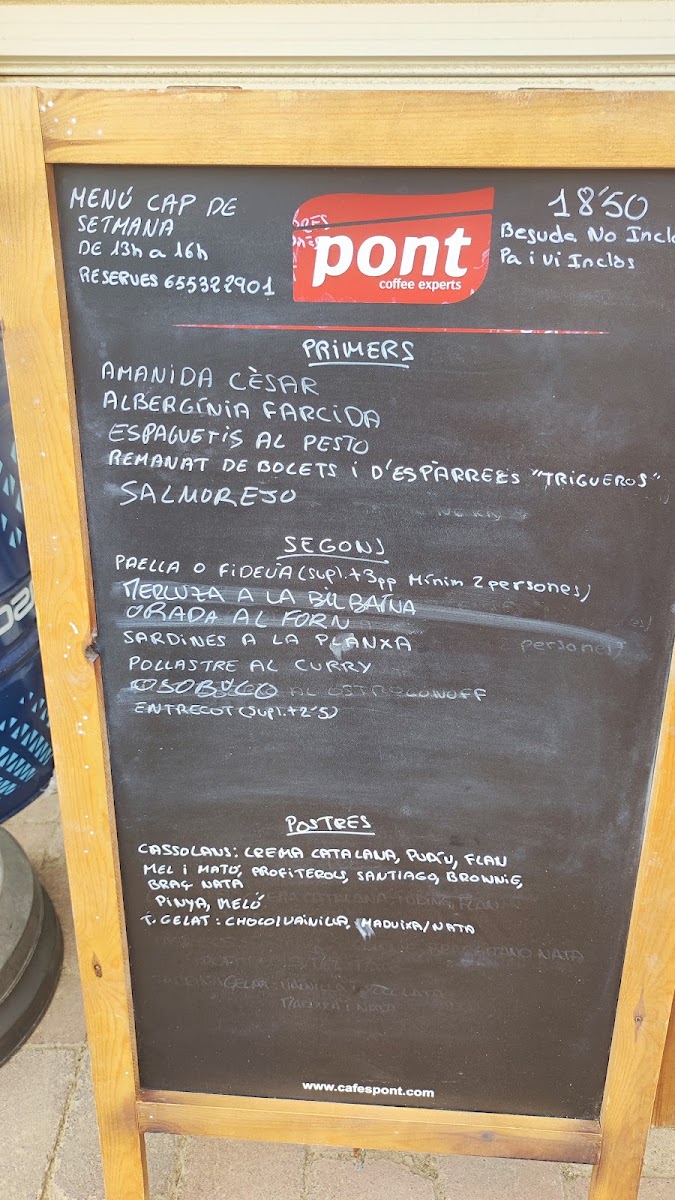 MENÚ CAP DE
SETMANA
DE 13h a 16h
RESERVES 655322901
pont
coffee experts
18'50
Beguda No Inclo
Pa i vi Inclòs
PRIMERS
AMANIDA CÈSAR
ALBERGÍNIA FARCIDA
ESPAGUETIS AL PESTO
REMANAT DE BOLETS i D'ESPÀRRECS "TRIGUEROS"
SALMOREJO
SEGONS
PAELLA O FIDEUA (supl.+3pp Mínim 2 persones)
MERLUZA A LA BILBAÏNA
ORADA AL FORN
SARDINES A LA PLANXA
persones)
POLLASTRE AL CURRY
OSOBUCO
ENTRECOT (supl.+2'5)
POSTRES
CASSOLANS: CREMA CATALANA, PUDÍN, FLAN
MEL i MATÓ, PROFITEROLS, SANTIAGO, BROWNIE,
BRAÇ NATA
PINYA, MELÓ
T. GELAT: CHOCO/VAINILLA, MADUIXA/NATA
www.cafespont.com